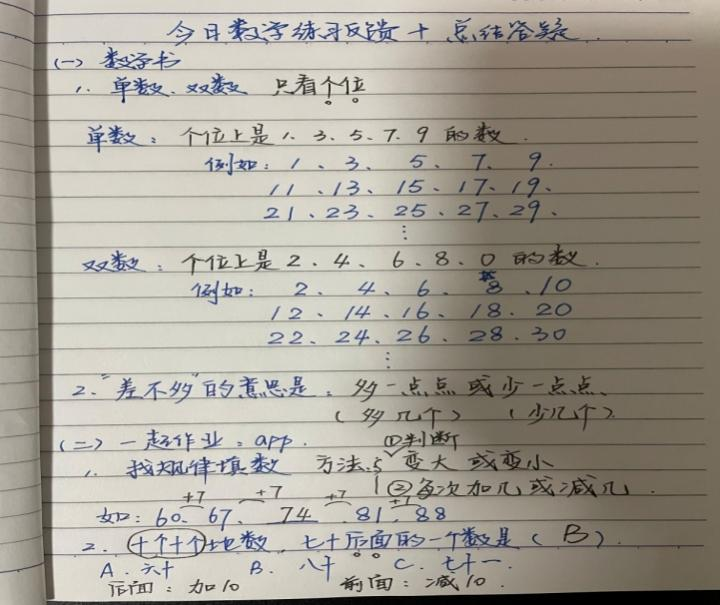 今日数学练习反馈+总结答疑.
(一) 数学书
1. 单数、双数 只看个位
单数：个位上是1、3、5、7、9的数.
例如：1、3、5、7、9.
11、13、15、17、19、
21、23、25、27、29、
⋮
双数：个位上是2、4、6、8、0的数.
例如：2、4、6、8、10
12、14、16、18、20
22、24、26、28、30
⋮
2. "差不多"的意思是：多一点点或少一点点、
(多几个) (少几个)
(二) 一起作业：app.
1. 找规律填数 方法：①判断变大或变小
②每次加几或减几.
+7 +7 +7 +7
如：60、67、74、81、88
2. 十个十个地数，七十后面的一个数是（B）.
A. 六十 B. 八十 C. 七十一.
后面：加10 前面：减10.